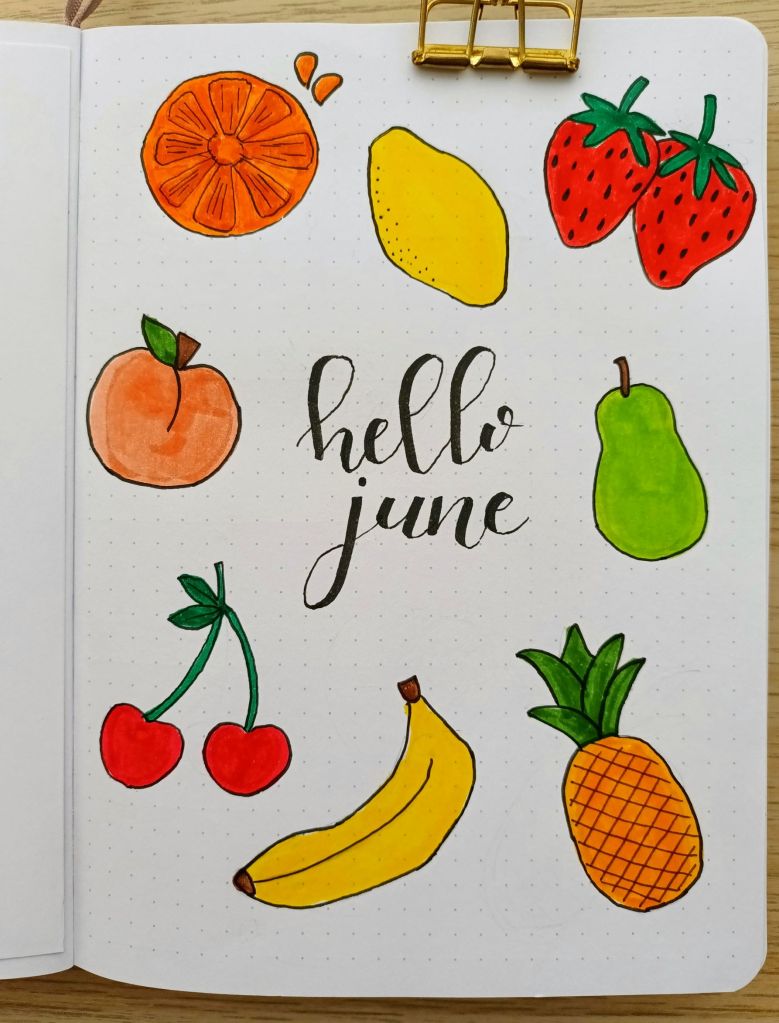 hello
june